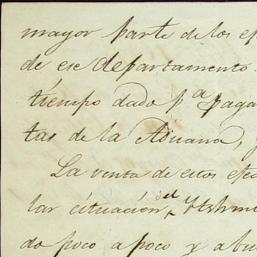 mayor parte de los ef
de ese departamento
tiempo dado pª paga
tas de la Aduana,
La venta de estos efec
lar cituación, el Ytshm
do poco a poco y abu